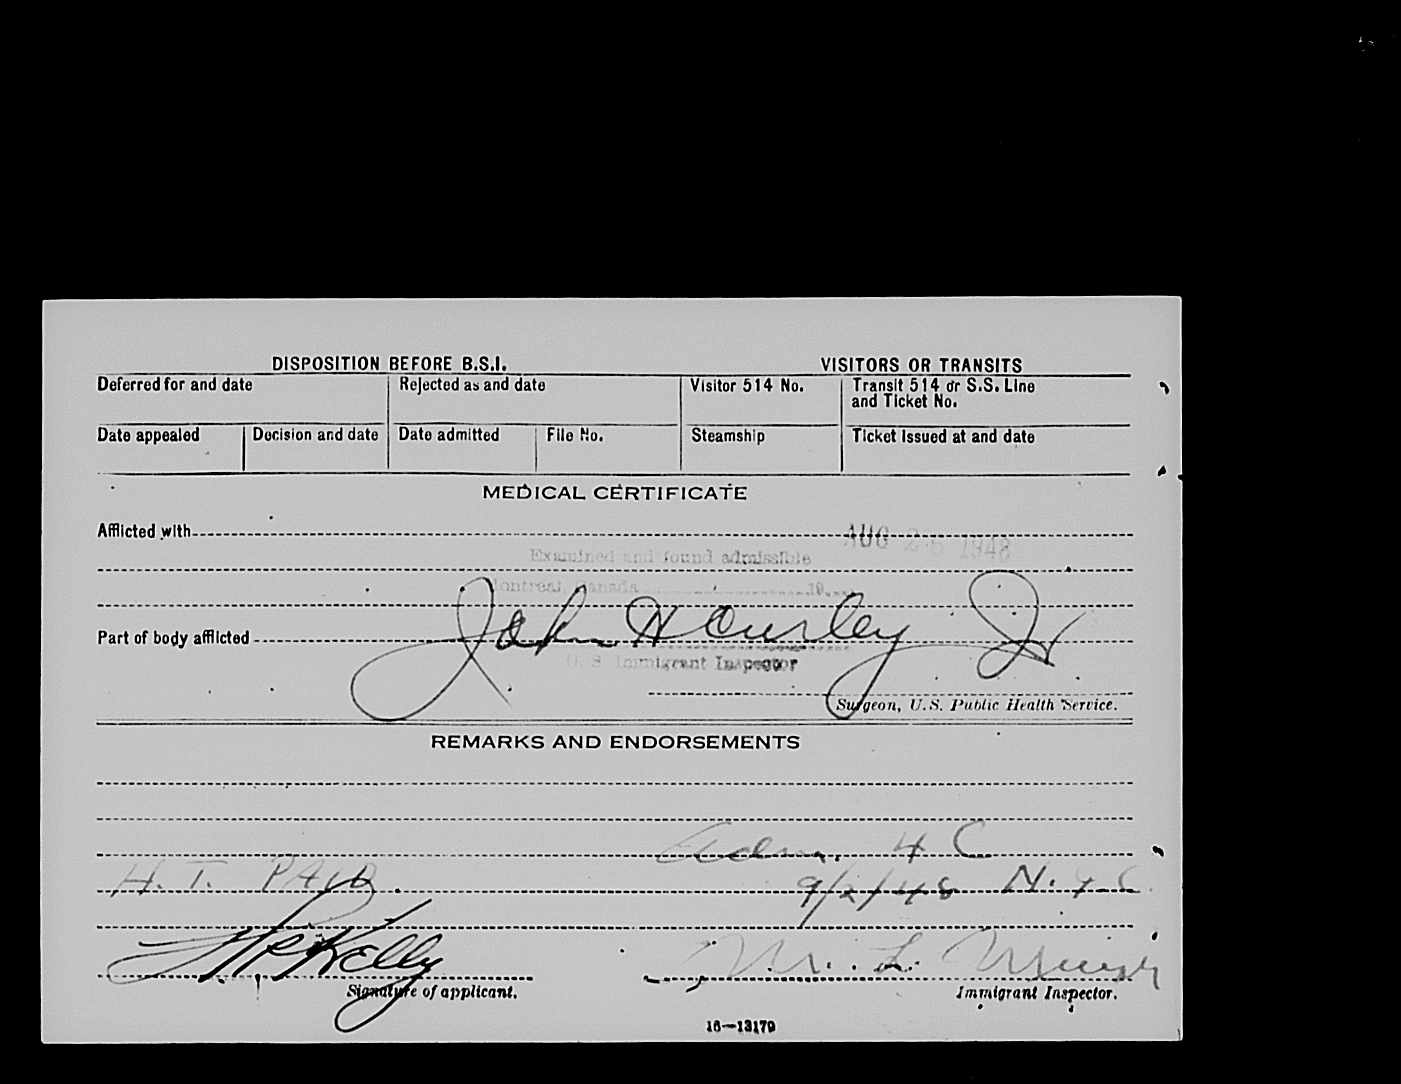 DISPOSITION BEFORE B.S.I. VISITORS OR TRANSITS
Deferred for and date Rejected as and date Visitor 514 No. Transit 514 or S.S. Line
and Ticket No.
Date appealed Decision and date Date admitted File No. Steamship Ticket issued at and date
MEDICAL CERTIFICATE
Afflicted with
AUG 26 1948
Examined and found admissible
Montreal, Canada 19
Part of body afflicted John Hourley Jr
U. S. Immigrant Inspector
Surgeon, U.S. Public Health Service.
REMARKS AND ENDORSEMENTS
Adm. 4 C
H. T. PAID. 9/2/48 N.Y.C.
Kelly M. L.
Signature of applicant. Immigrant Inspector.
16—13179